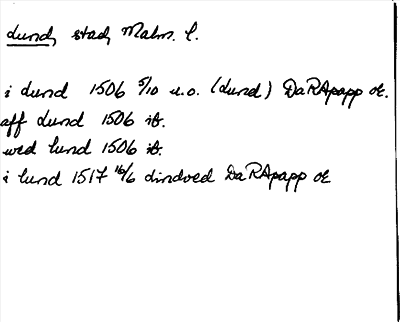 Lund, stad, Malm. l.
i Lund 1506 5/10 u.o. (Lund) DaRApapp or.
aff Lund 1506 ib.
wed lund 1506 ib.
i lund 1517 16/6 Lindved DaRApapp or